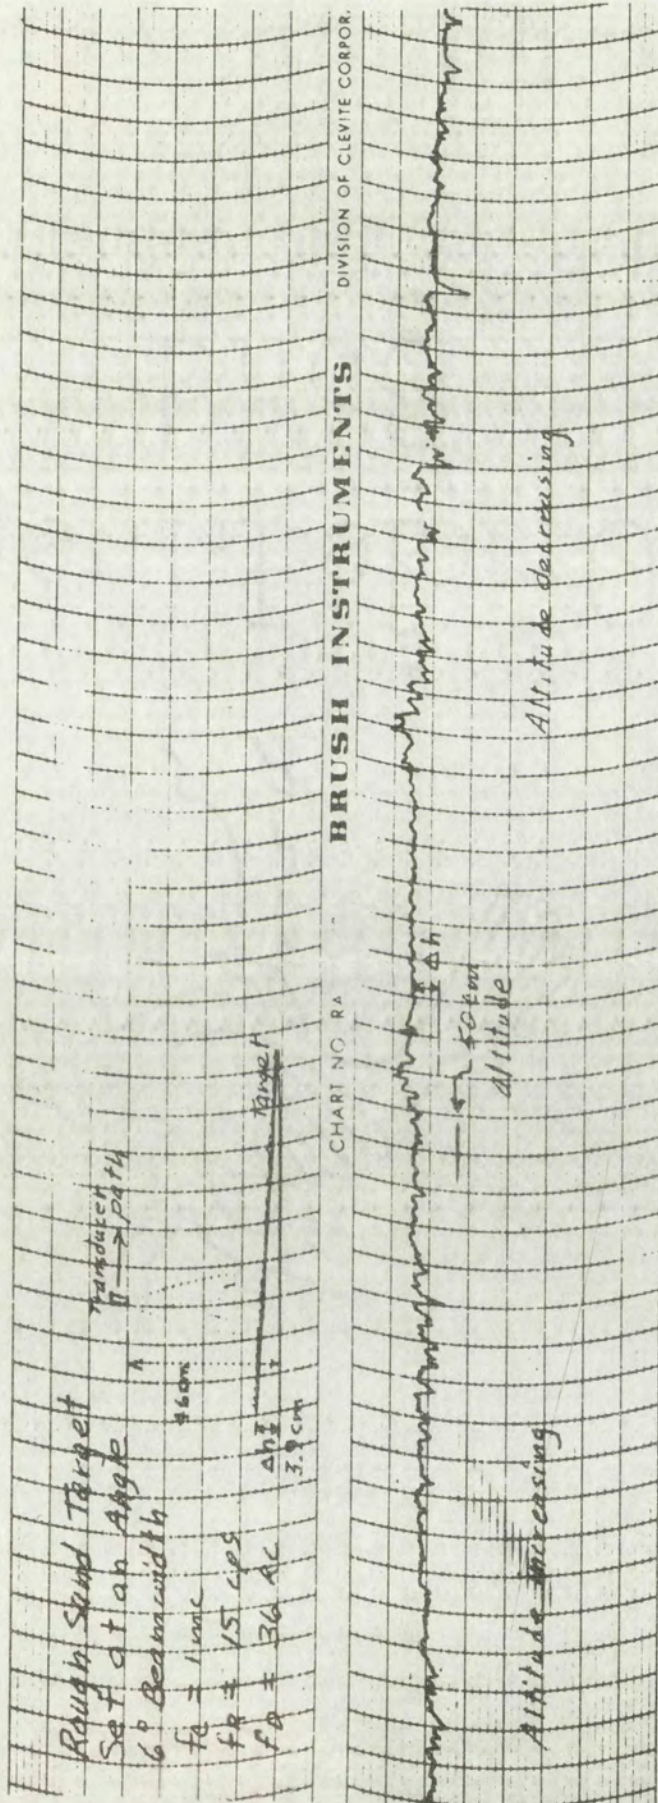 Rough Sand Target
Set at an Angle
6° Beamwidth
fc = 1 mc
fR = 15 cps
fD = 36 KC
Transducer
path
46cm
Δh
3.9cm
Target
CHART NO. RA
BRUSH INSTRUMENTS
DIVISION OF CLEVITE CORPOR.
Δh
50cm
altitude
Altitude increasing
Altitude decreasing